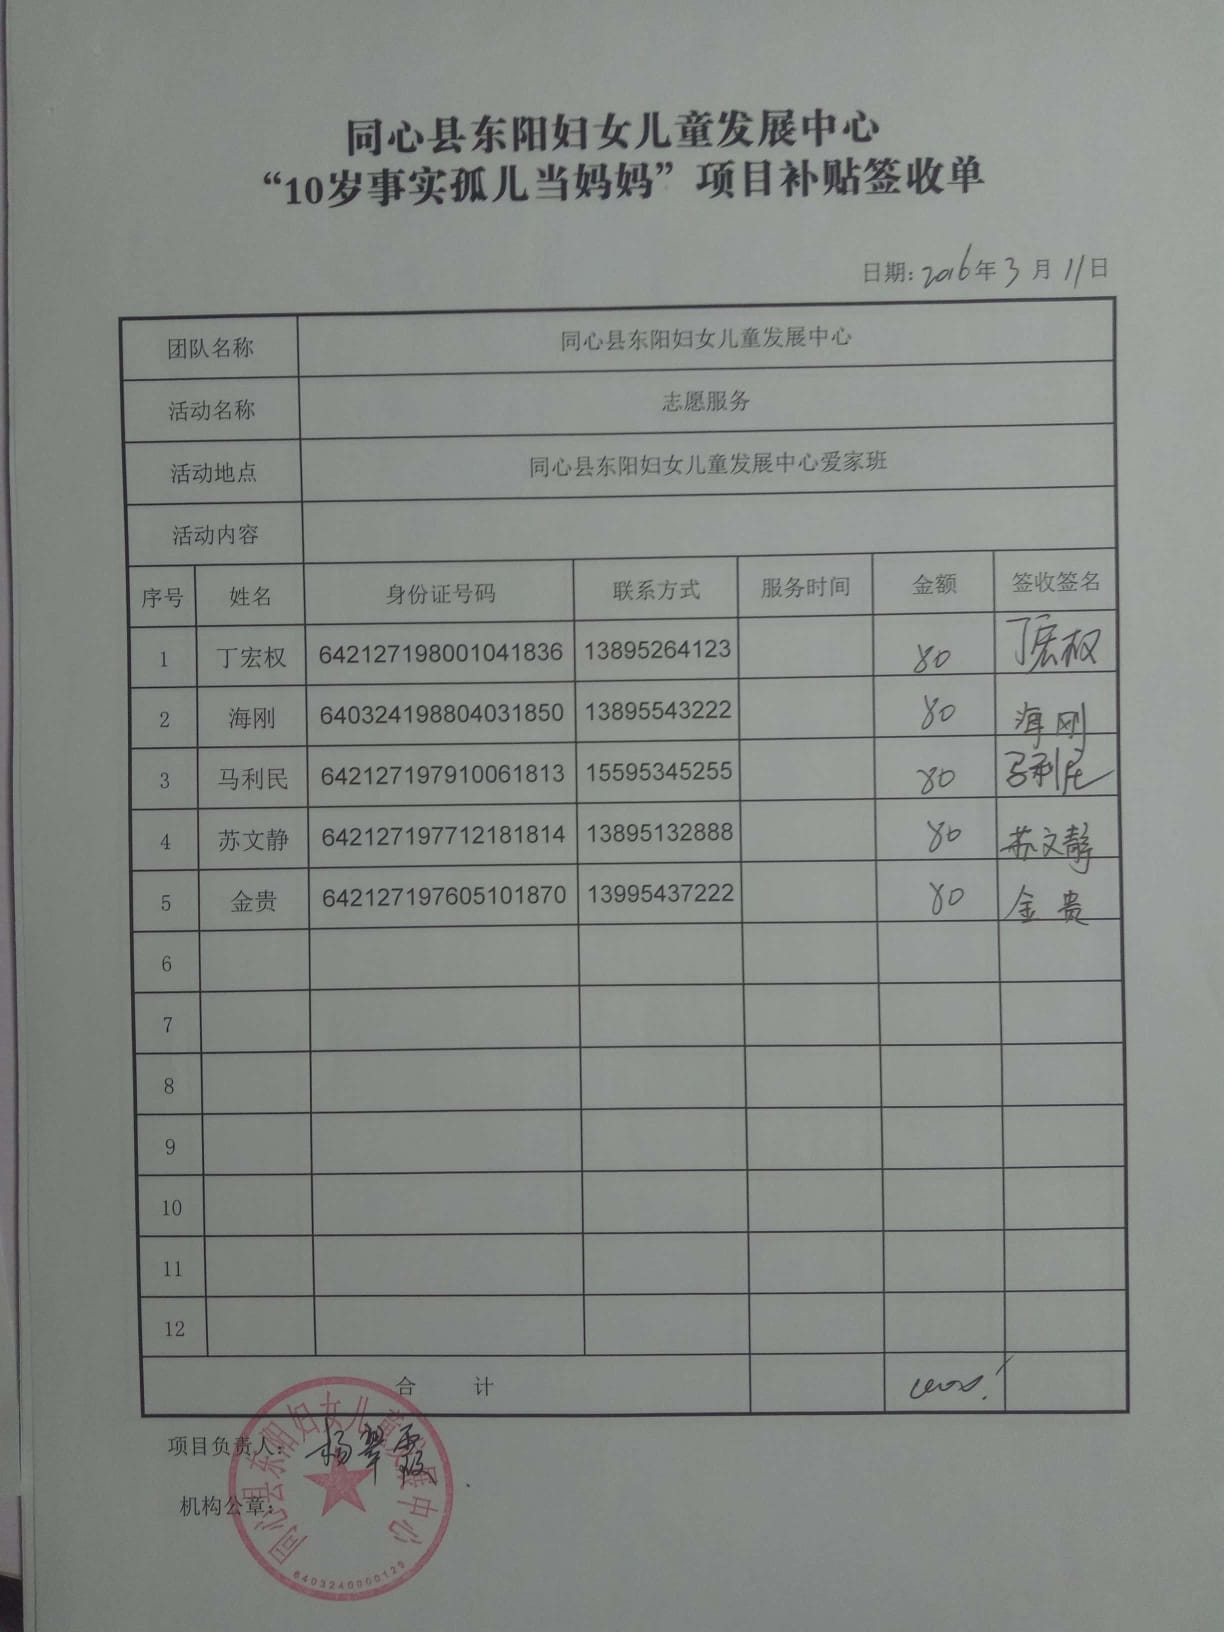 同心县东阳妇女儿童发展中心
“10岁事实孤儿当妈妈”项目补贴签收单
日期: 2016年3月11日
团队名称 同心县东阳妇女儿童发展中心
活动名称 志愿服务
活动地点 同心县东阳妇女儿童发展中心爱家班
活动内容
序号 姓名 身份证号码 联系方式 服务时间 金额 签收签名
1 丁宏权 642127198001041836 13895264123 80 丁宏权
2 海刚 640324198804031850 13895543222 80 海刚
3 马利民 642127197910061813 15595345255 80 马利民
4 苏文静 642127197712181814 13895132888 80 苏文静
5 金贵 642127197605101870 13995437222 80 金贵
6
7
8
9
10
11
12
合 计
项目负责人: 杨翠霞
机构公章:
同心县东阳妇女儿童发展中心
6403240000129